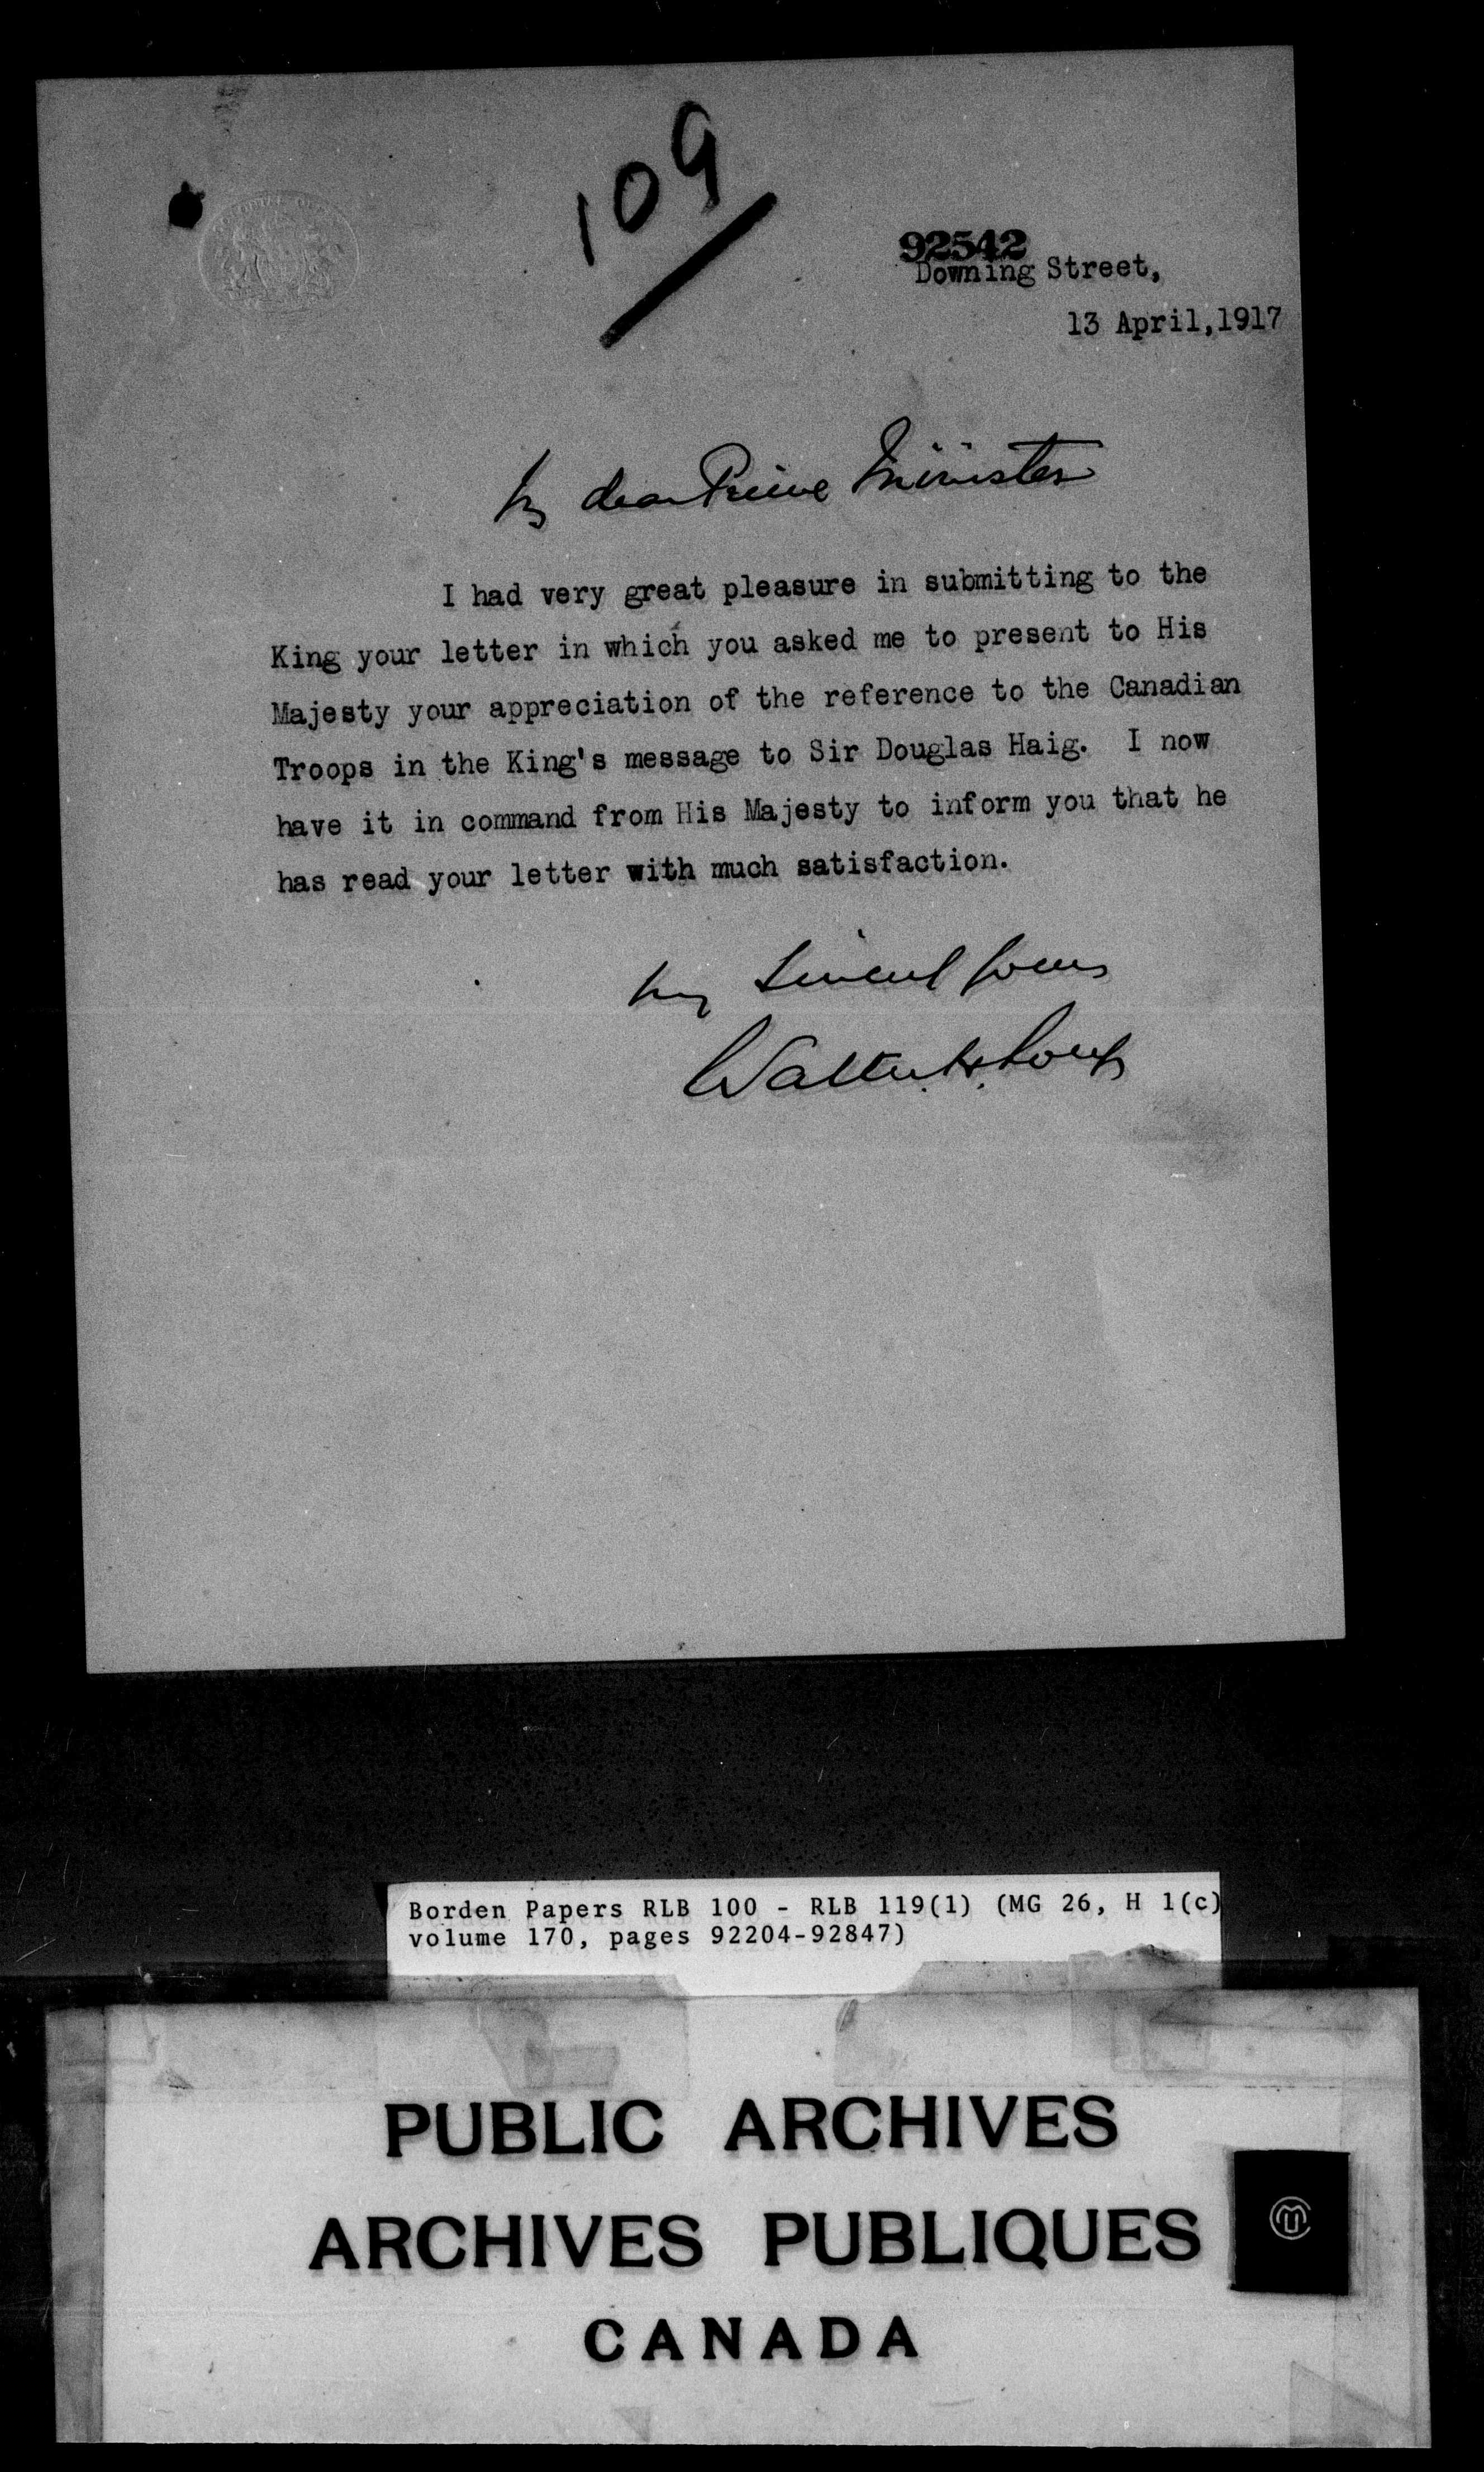 109
92542
Downing Street,
13 April, 1917
My dear Prime Minister
I had very great pleasure in submitting to the
King your letter in which you asked me to present to His
Majesty your appreciation of the reference to the Canadian
Troops in the King's message to Sir Douglas Haig. I now
have it in command from His Majesty to inform you that he
has read your letter with much satisfaction.
Very sincerely yours
Walter H. Long
Borden Papers RLB 100 - RLB 119(1) (MG 26, H 1(c)
volume 170, pages 92204-92847)
PUBLIC ARCHIVES
ARCHIVES PUBLIQUES
CANADA